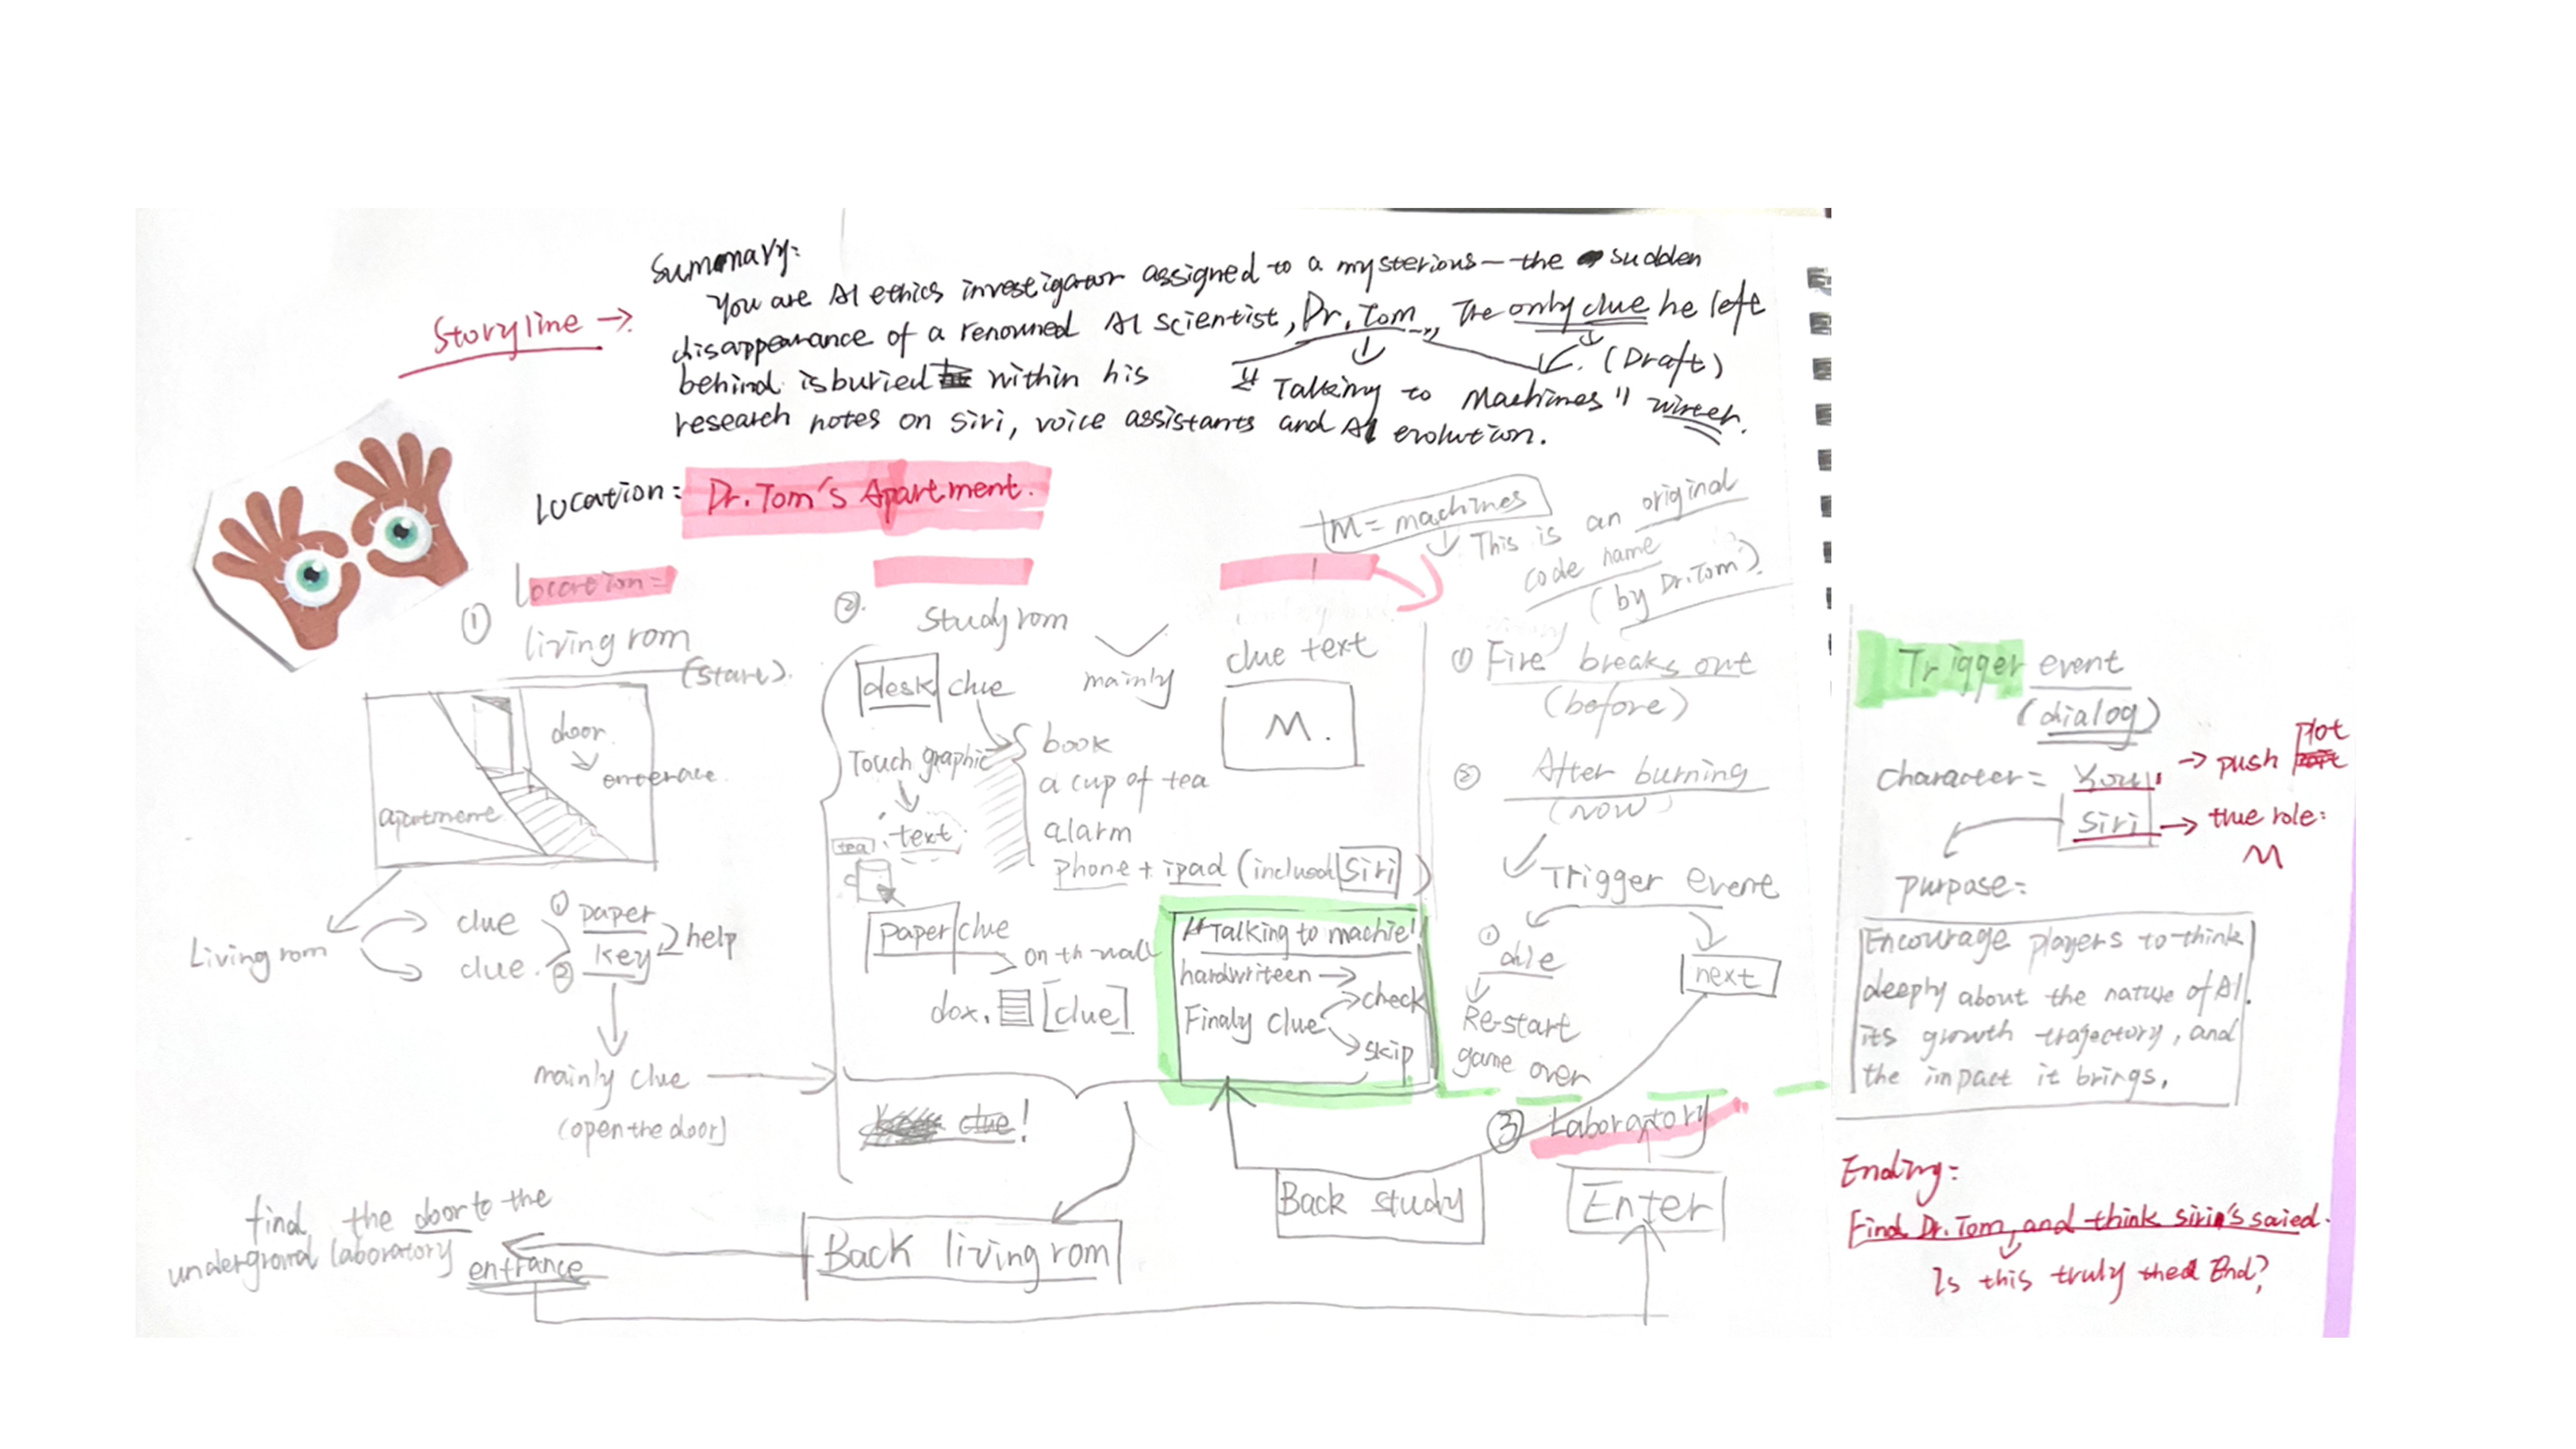 Summary:
You are AI ethics investigator assigned to a mysterious—the sudden
disappearance of a renouned AI scientist, Dr. Tom, The only clue he left
behind is buried within his
(Draft)
"Talking to Machines"
research notes on Siri, voice assistants and AI evolution.
Storyline →
Location: Dr. Tom's Apartment.
M = machines
This is an original
code name
(by Dr. Tom)
Location =
① living rom
(start).
door
apartment
Living rom
clue ① paper
clue. ② key
help
mainly clue
(open the door)
②. Study rom
mainly
desk clue
Touch graphic
text
tea
book
a cup of tea
alarm
phone + ipad (included Siri)
paper clue
on-th-wall
dox. [clue]
clue!
clue text
M.
"Talking to machie"
hardwriteen →
Finaly clue
check
skip
① Fire breaks out
(before)
② After burning
(now)
Trigger event
①
Re-start
game over
next
③ Laboratory
Back study
Enter
Back living rom
find the door to the
underground laboratory
entrance
Trigger event
(dialog)
character = You → push plot
Siri → true role:
M
purpose =
Encourage players to think
deeply about the nature of AI.
its growth trajectory, and
the impact it brings.
Ending:
Find Dr. Tom, and think siri's saied.
Is this truly the End?